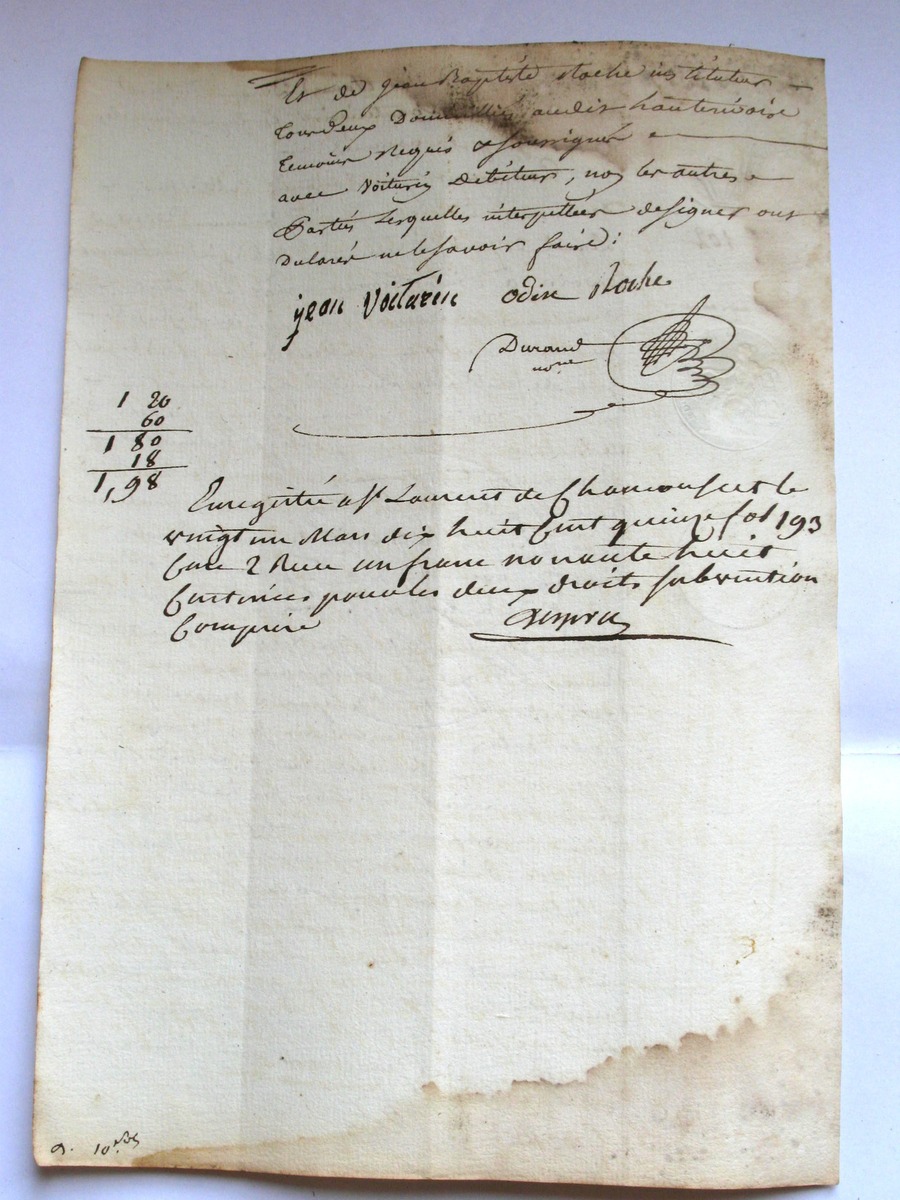 Et de jean Baptiste Roche instituteur
tous deux Domiciliés audit hauterivoire
temoins Requis & soussignés
avec Voiturin Debiteur, non les autres
Parties Lesquelles interpellées de signer ont
Declaré ne le savoir faire :
jean Voiturin odin Roche
Durand
nore
1 20
60
1 80
18
1,98
Enregistré a St Laurent de Chamousset le
vingt un Mars dix huit Cent quinze fol 193
Case 2 Recu un franc nonante huit
Centimes pour les deux droits subvention
Comprise